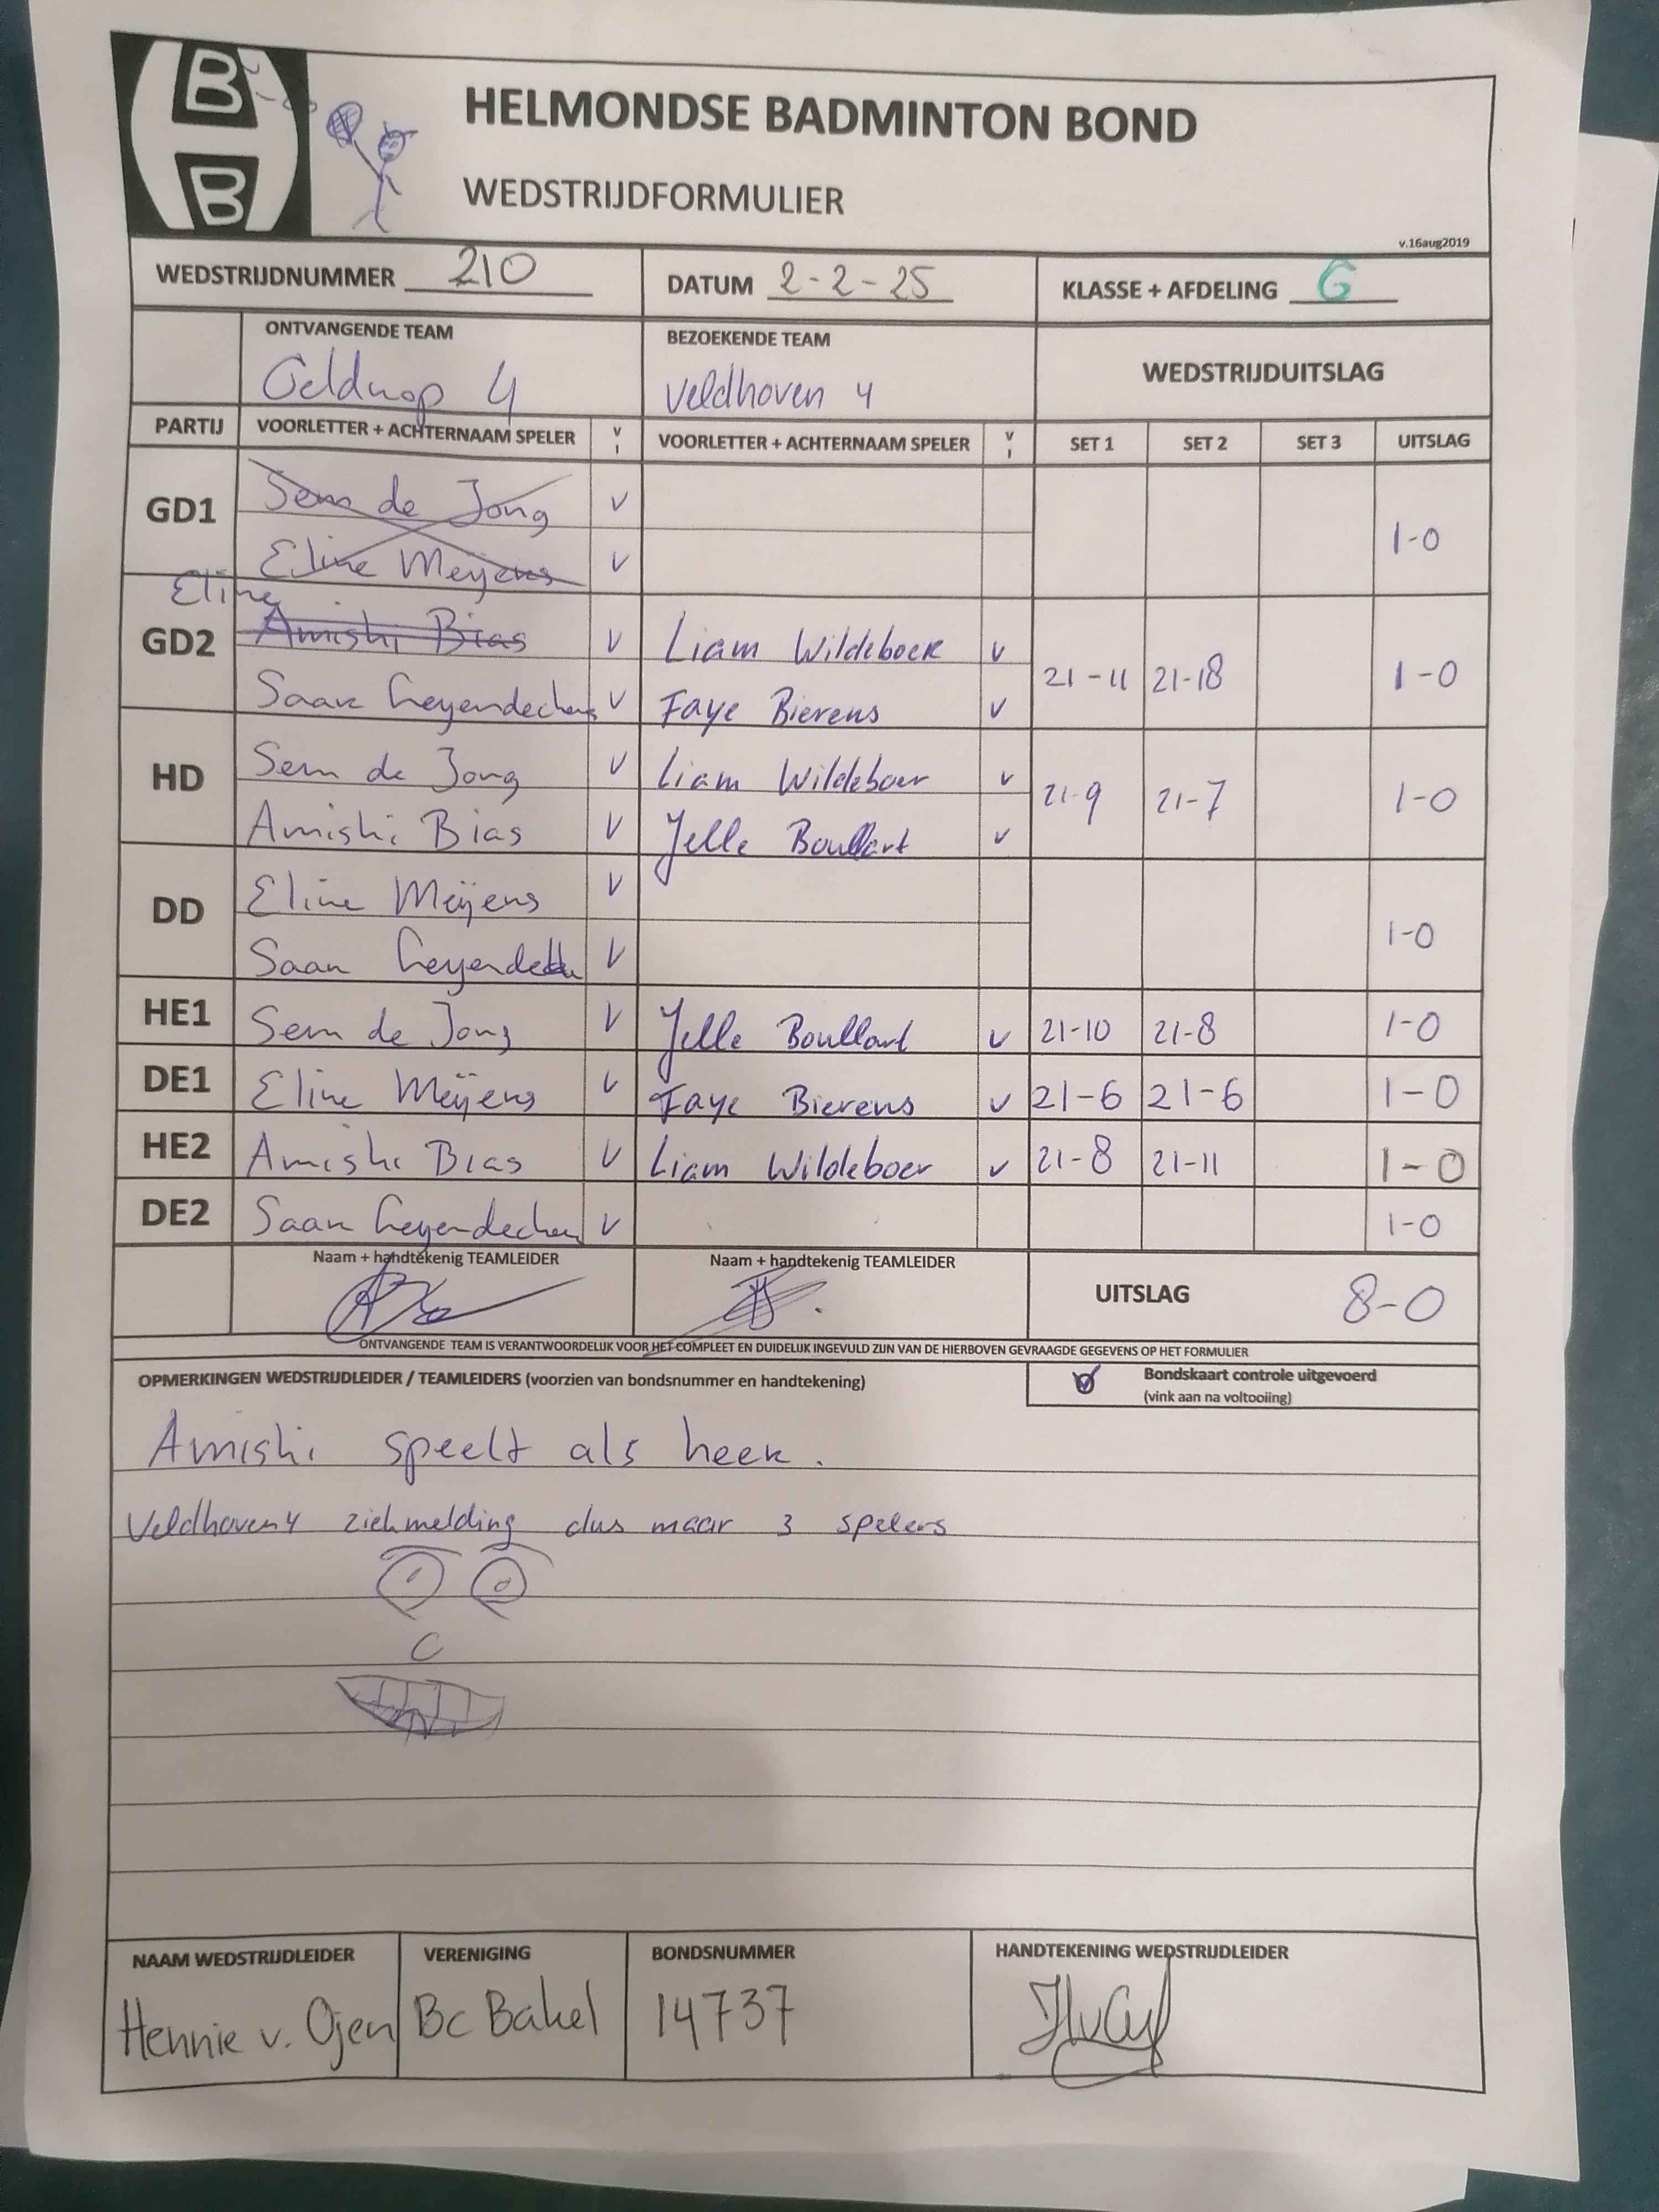 B
B
HELMONDSE BADMINTON BOND
WEDSTRIJDFORMULIER
v.16aug2019
WEDSTRIJDNUMMER 210 DATUM 2-2-25 KLASSE + AFDELING G
ONTVANGENDE TEAM BEZOEKENDE TEAM WEDSTRIJDUITSLAG
Geldrop 4 Veldhoven 4
PARTIJ VOORLETTER + ACHTERNAAM SPELER V I VOORLETTER + ACHTERNAAM SPELER V I SET 1 SET 2 SET 3 UITSLAG
GD1 Sem de Jong V 1-0
Eline Meijens V
Eline
GD2 Amishi Bias V Liam Wildeboer V 21-11 21-18 1-0
Saar V Faye Bierens V
HD Sem de Jong V Liam Wildeboer V 21-9 21-7 1-0
Amishi Bias V Jelle Boullart V
DD Eline Meijens V 1-0
Saar V
HE1 Sem de Jong V Jelle Boullart V 21-10 21-8 1-0
DE1 Eline Meijens V Faye Bierens V 21-6 21-6 1-0
HE2 Amishi Bias V Liam Wildeboer V 21-8 21-11 1-0
DE2 Saar V 1-0
Naam + handtekenig TEAMLEIDER Naam + handtekenig TEAMLEIDER
UITSLAG 8-0
ONTVANGENDE TEAM IS VERANTWOORDELIJK VOOR HET COMPLEET EN DUIDELIJK INGEVULD ZIJN VAN DE HIERBOVEN GEVRAAGDE GEGEVENS OP HET FORMULIER
OPMERKINGEN WEDSTRIJDLEIDER / TEAMLEIDERS (voorzien van bondsnummer en handtekening) Bondskaart controle uitgevoerd
(vink aan na voltooiing)
Amishi speelt als heer.
Veldhoven 4 ziekmelding dus maar 3 spelers
NAAM WEDSTRIJDLEIDER VERENIGING BONDSNUMMER HANDTEKENING WEDSTRIJDLEIDER
Hennie v. Ojen Bc Bakel 14737